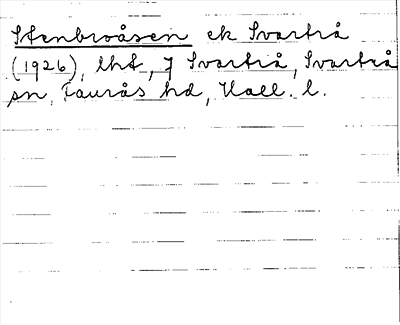 Stenbroåsen ek Svartrå
(1926), lht, 7 Svartrå, Svartrå
sn, Faurås hd, Hall. l.